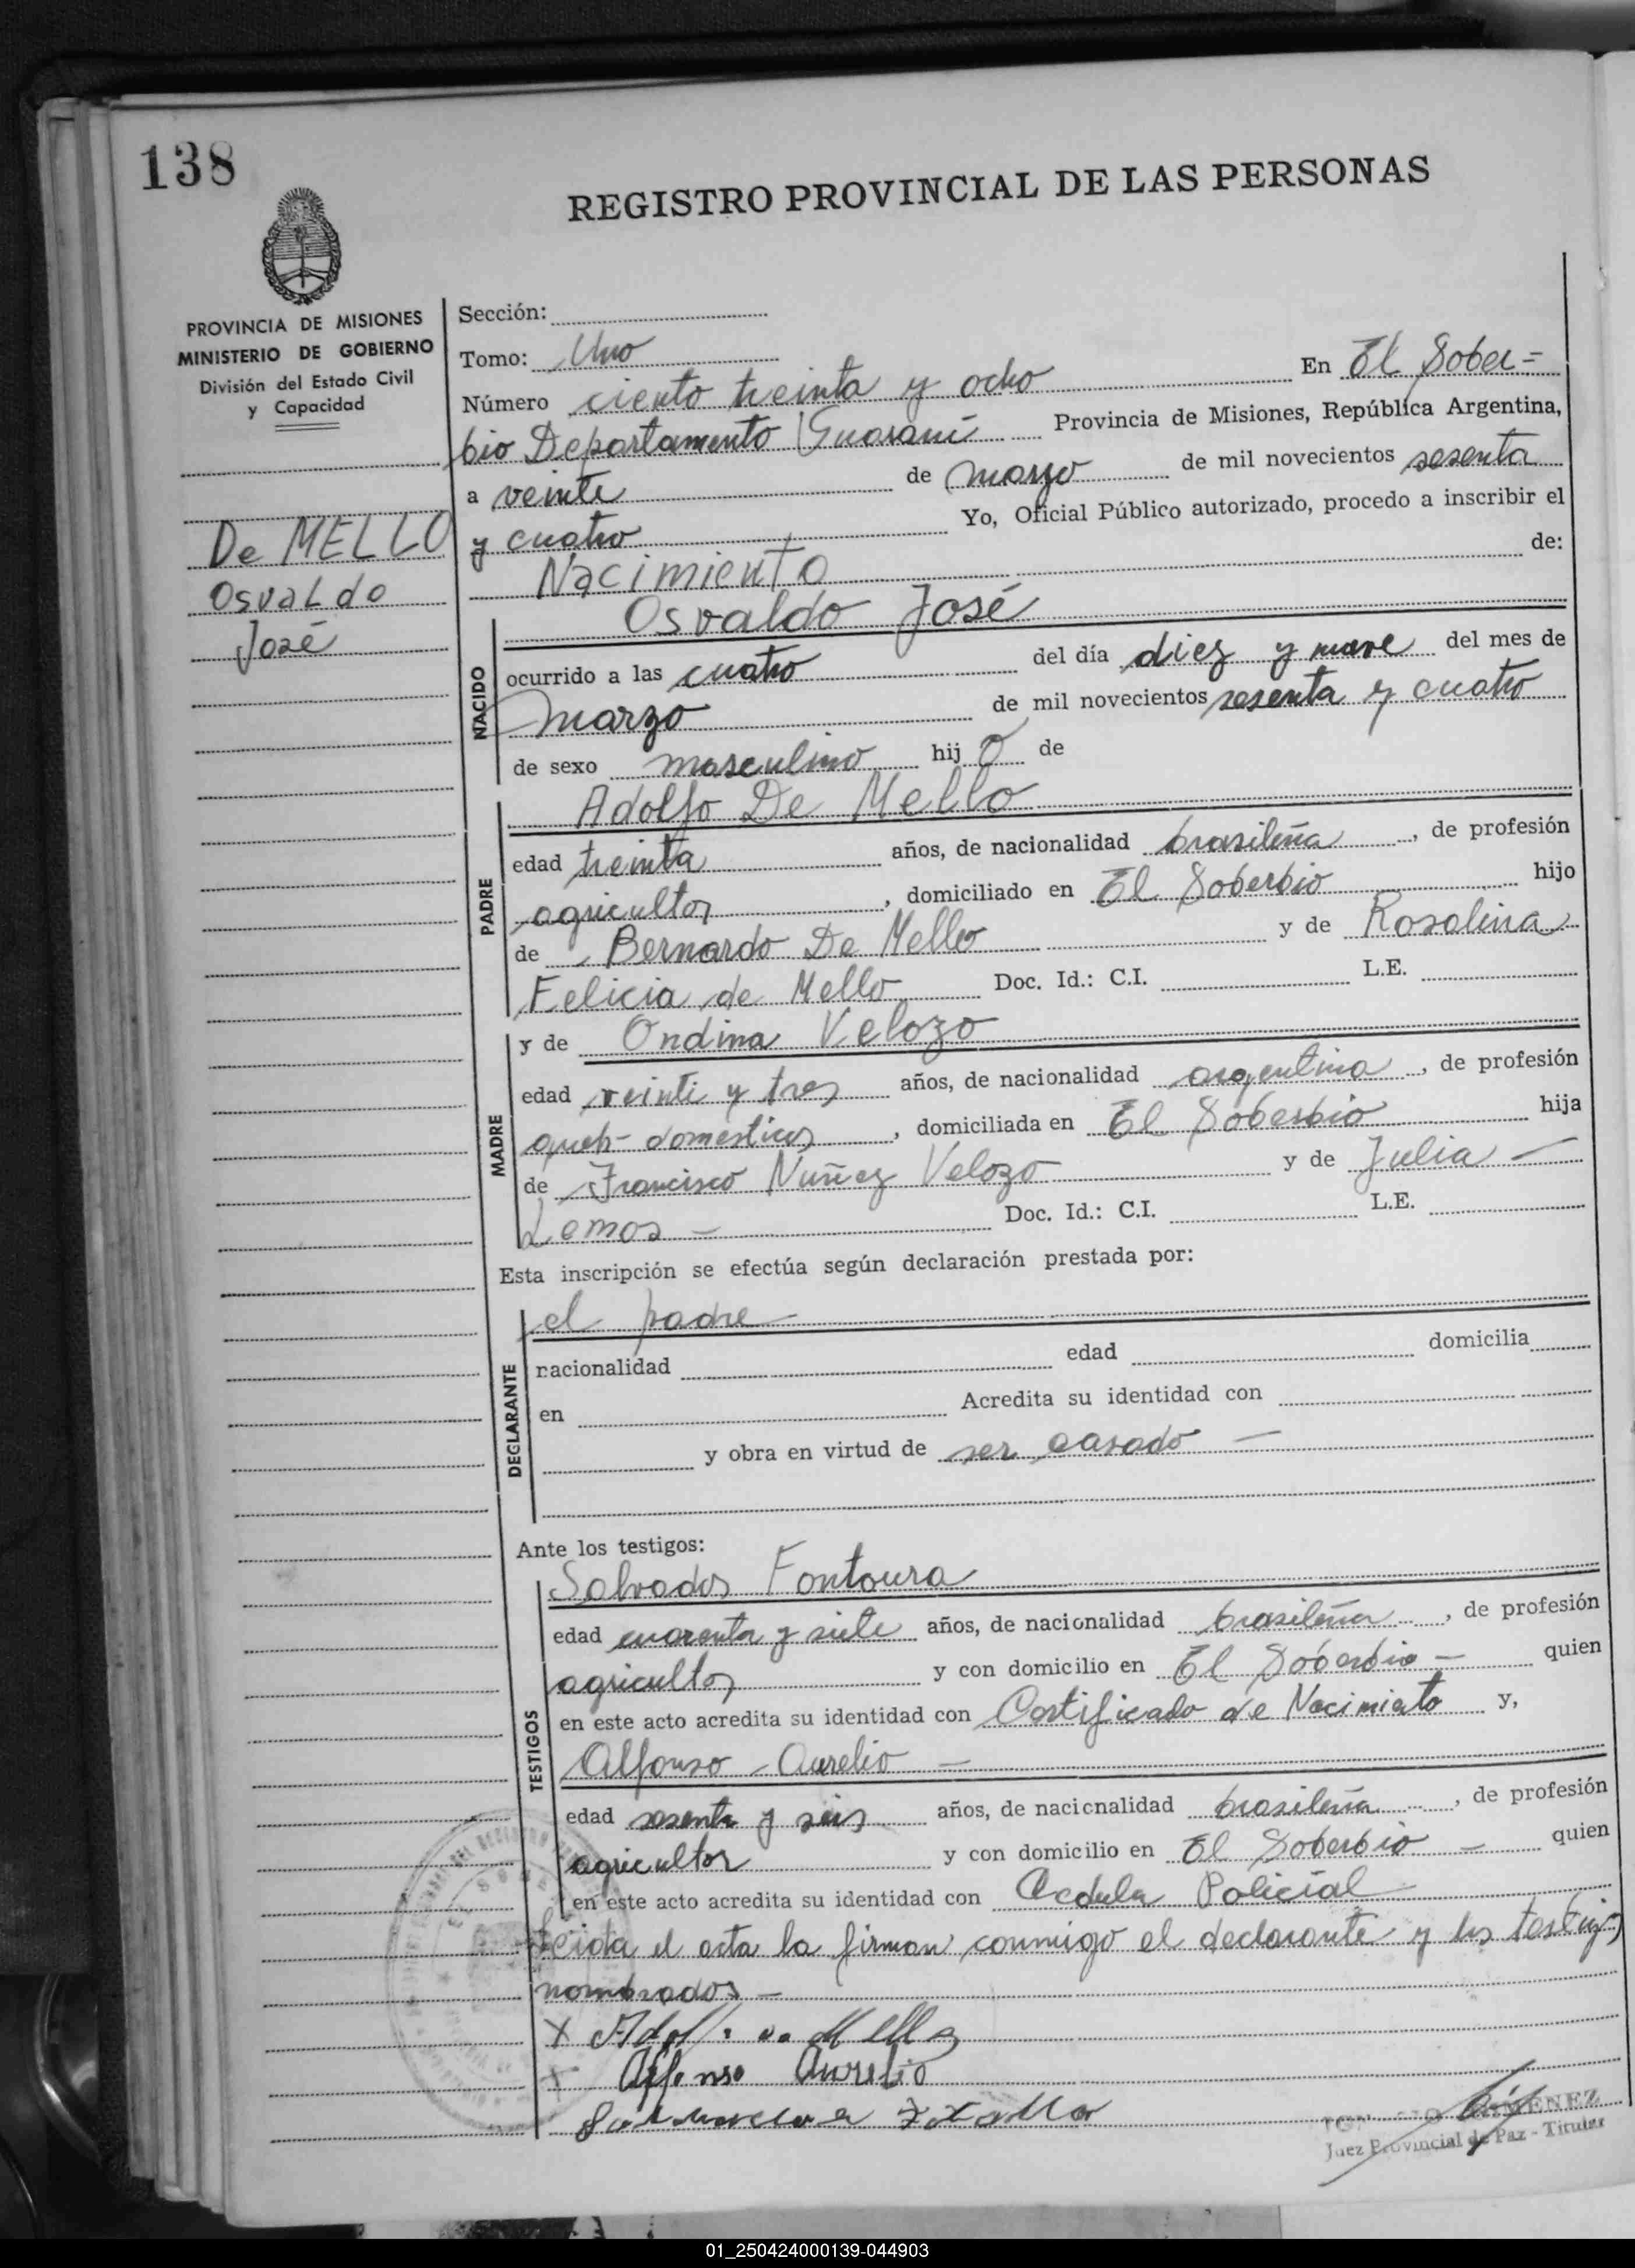 138
REGISTRO PROVINCIAL DE LAS PERSONAS
PROVINCIA DE MISIONES
MINISTERIO DE GOBIERNO
División del Estado Civil
y Capacidad
De MELLO
Osvaldo
José
Sección:
Tomo: Uno
Número ciento treinta y ocho En El Sober=
bio Departamento Guaraní Provincia de Misiones, República Argentina,
a veinte de marzo de mil novecientos sesenta
y cuatro Yo, Oficial Público autorizado, procedo a inscribir el
Nacimiento de:
Osvaldo José
NACIDO
ocurrido a las cuatro del día diez y nueve del mes de
marzo de mil novecientos sesenta y cuatro
de sexo masculino hij o de
PADRE
Adolfo De Mello
edad treinta años, de nacionalidad brasileña, de profesión
agricultor, domiciliado en El Soberbio hijo
de Bernardo De Mello y de Rosalina
Felicia de Mello Doc. Id.: C.I. L.E.
MADRE
y de Ondina Velozo
edad veinte y tres años, de nacionalidad argentina, de profesión
domesticos, domiciliada en El Soberbio hija
de Francisco Nuñez Velozo y de Julia —
Lemos — Doc. Id.: C.I. L.E.
Esta inscripción se efectúa según declaración prestada por:
DECLARANTE
el padre —
nacionalidad edad domicilia
en Acredita su identidad con
y obra en virtud de ser casado —
Ante los testigos:
TESTIGOS
Salvador Fontoura
edad cuarenta y siete años, de nacionalidad brasileña, de profesión
agricultor y con domicilio en El Soberbio — quien
en este acto acredita su identidad con Certificado de Nacimiento y,
Alfonso Aurelio —
edad sesenta y seis años, de nacionalidad brasileña, de profesión
agricultor y con domicilio en El Soberbio — quien
en este acto acredita su identidad con Cedula Policial
Leida el acta la firman conmigo el declarante y los testigos
nombrados —
x Mello
x Alfonso Aurelio
Juez Provincial de Paz - Titular
01_250424000139-044903